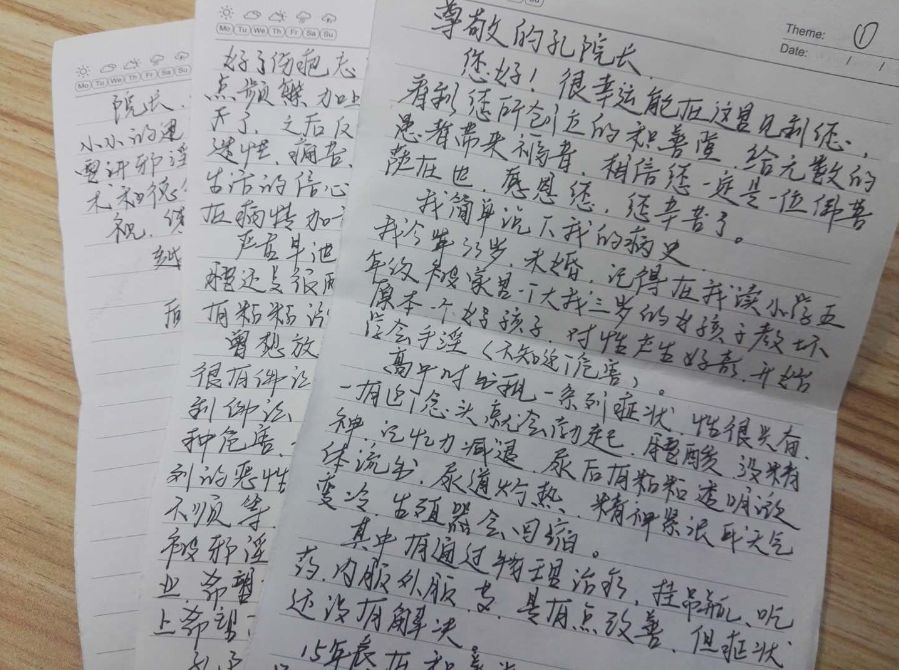 Theme: ①
Date: / /
尊敬的孔院长.
您好！很幸运能在这里见到您,
看到您所创立的和善堂, 给无数的
患者带来福音, 相信您一定是一位佛菩
萨在世, 感恩您, 您辛苦了。
我简单说下我的病史.
我今年33岁, 未婚, 记得在我读小学五
年级 被家里一个大我三岁的女孩子教坏
原本一个好孩子, 对性产生好奇, 开始
学会手淫 (不知道危害)。
高中时出现一系列症状, 性很兴奋,
一有这念头就会勃起, 腰酸 没精
神 记忆力减退, 尿后有粘粘透明液
体流出, 尿道灼热、精神紧张 天气
变冷 生殖器会回缩。
其中有通过物理治疗, 挂吊瓶、吃
药, 内服外服, 是有点改善, 但症状
还没有解决
15年底在和善堂
Mo Tu We Th Fr Sa Su
好了伤疤忘
点频繁 加上
开了, 之后
痛苦,
生活的信心
在病情加
严重早泄
腰还是很
有粘粘
曾想放
很有
到佛法
种危害
到的恶性
不顺等
被邪淫
业, 希望
上希望
Mo Tu We Th Fr Sa Su
院长,
小小的
邪淫
术和德
祝,
越